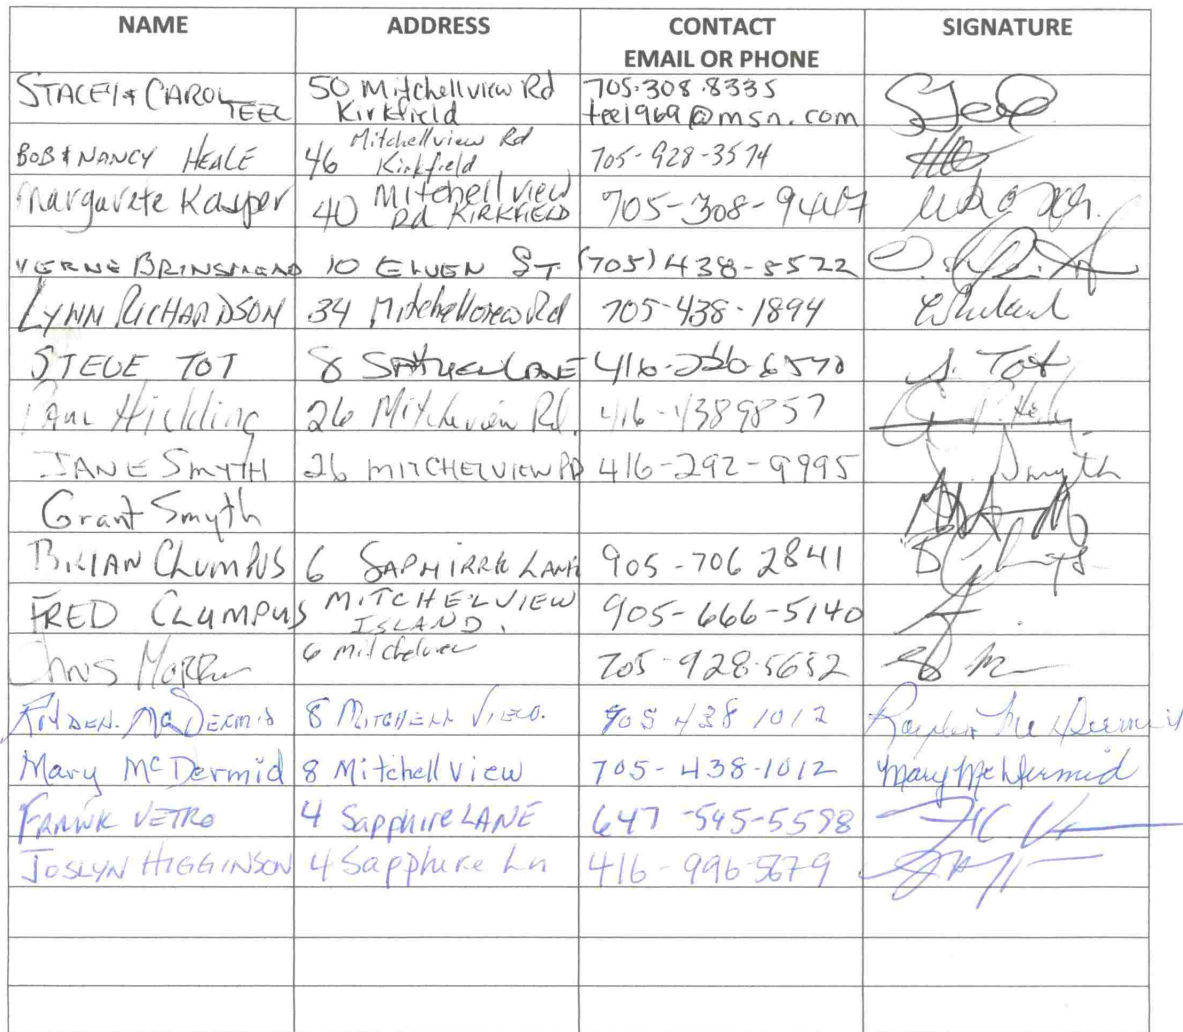 NAME ADDRESS CONTACT EMAIL OR PHONE SIGNATURE
STACEY & CAROL TEEL 50 Mitchellview Rd Kirkfield 705.308.8335 teel1969@msn.com STeel
BOB & NANCY HEALE 46 Mitchellview Rd Kirkfield 705-928-3574
Margarete Kasper 40 Mitchellview Rd KIRKFIELD 705-308-9447
VERNE BRINSMEAD 10 ELVEN ST (705) 438-5522
LYNN RICHARDSON 34 Mitchellview Rd 705-438-1894
STEVE TOT 8 LANE 416-226-6570 S. Tot
PAUL Hickling 26 Mitchview Rd. 416-4389857
JANE SMYTH 26 MITCHELVIEW RD 416-292-9995 J. Smyth
Grant Smyth
BRIAN CLUMPUS 6 SAPHIRRE LANE 905-706 2841
FRED CLUMPUS MITCHELVIEW ISLAND. 905-666-5140
6 Mitchelview 705-928-5652
McDERMID 8 MITCHELL VIEW. 705 438 1012 McDermid
Mary McDermid 8 Mitchell View 705-438-1012 Mary McDermid
FRANK VETRO 4 Sapphire LANE 647-545-5598
JOSLYN HIGGINSON 4 Sapphire Ln 416-996-5679